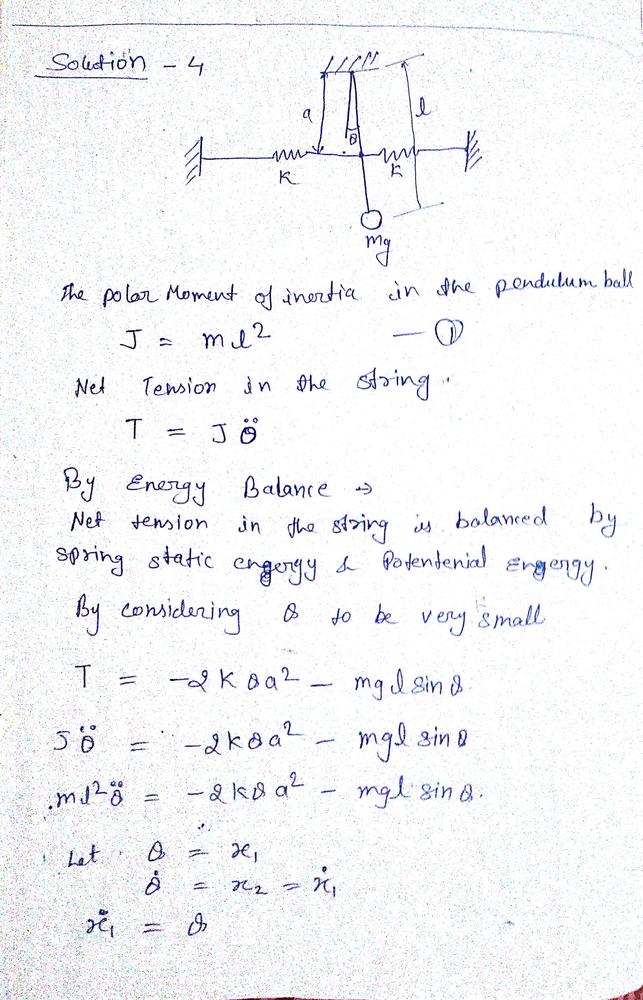 Solution - 4
a
l
θ
K
K
mg
The polar Moment of inertia in the pendulum ball
J = ml² — ①
Net Tension in the string.
T = Jθ̈
By Energy Balance →
Net tension in the string is balanced by
spring static engergy & Potentenial Engergy.
By considering θ to be very small
T = -2Kθa² - mgl sinθ
Jθ̈ = -2Kθa² - mgl sinθ
ml²θ̈ = -2Kθa² - mgl sinθ.
Let θ = x₁
θ̇ = x₂ = ẋ₁
ẋ₁ = θ